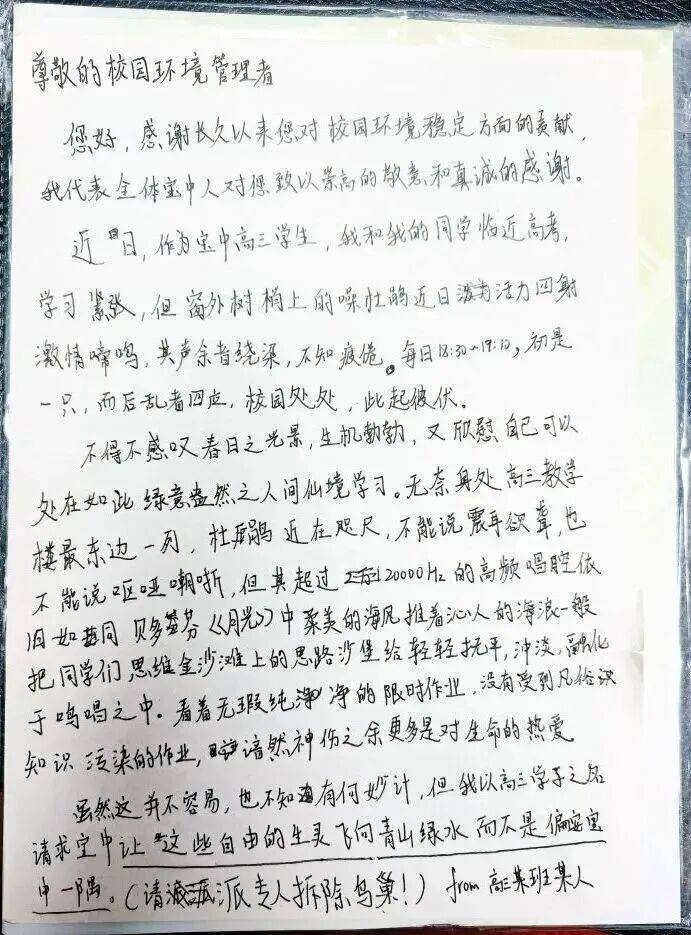 尊敬的校园环境管理者
您好，感谢长久以来您对校园环境稳定方面的贡献，
我代表全体宝中人对您致以崇高的敬意和真诚的感谢。
近日，作为宝中高三学生，我和我的同学临近高考，
学习紧张，但窗外树梢上的噪杜鹃近日活力四射
激情啼鸣，其声余音绕梁，不知疲倦。每日18:30~19:10，初是
一只，而后乱者四点，校园处处，此起彼伏。
不得不感叹春日之光景，生机勃勃，又欣慰自己可以
处在如此绿意盎然之人间仙境学习。无奈身处高三教学
楼最东边一列，杜鹃近在咫尺，不能说震耳欲聋，也
不能说呕哑嘲哳，但其超过20000Hz的高频唱腔依
旧如同贝多芬《月光》中柔美的海风推着沁人的海浪一般
把同学们思维金沙滩上的思路沙堡给轻轻抚平，冲淡，融化
于鸣唱之中。看着无瑕纯净的限时作业，没有受到凡俗识
知识污染的作业，谙然神伤之余更多是对生命的热爱
虽然这并不容易，也不知有何妙计，但我以高三学子之名
请求宝中让这些自由的生灵飞向青山绿水而不是偏安宝
中一隅。（请派专人拆除鸟巢！）from高三某班某人